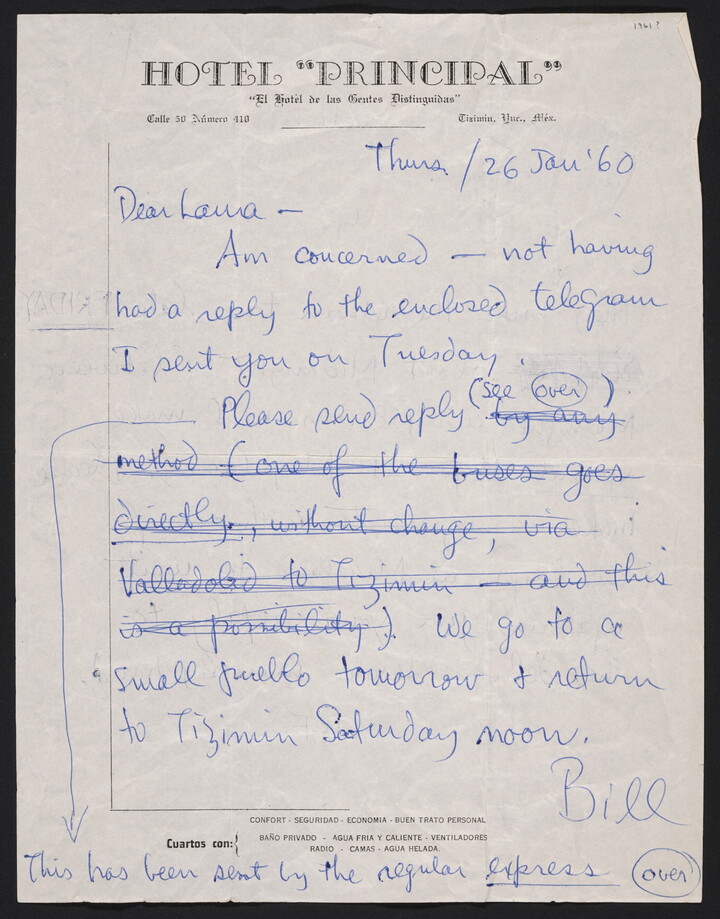 1961?
HOTEL "PRINCIPAL"
"El Hotel de las Gentes Distinguidas"
Calle 50 Número 410
Tizimin, Yuc., Méx.
Thurs. / 26 Jan '60
Dear Laura —
Am concerned — not having
had a reply to the enclosed telegram
I sent you on Tuesday.
Please send reply (see over) by any
method (one of the buses goes
directly, without change, via
Valladolid to Tizimin — and this
is a possibility). We go to a
small pueblo tomorrow & return
to Tizimin Saturday noon.
Bill
CONFORT - SEGURIDAD - ECONOMIA - BUEN TRATO PERSONAL
Cuartos con:
BAÑO PRIVADO - AGUA FRIA Y CALIENTE - VENTILADORES
RADIO - CAMAS - AGUA HELADA.
This has been sent by the regular express over